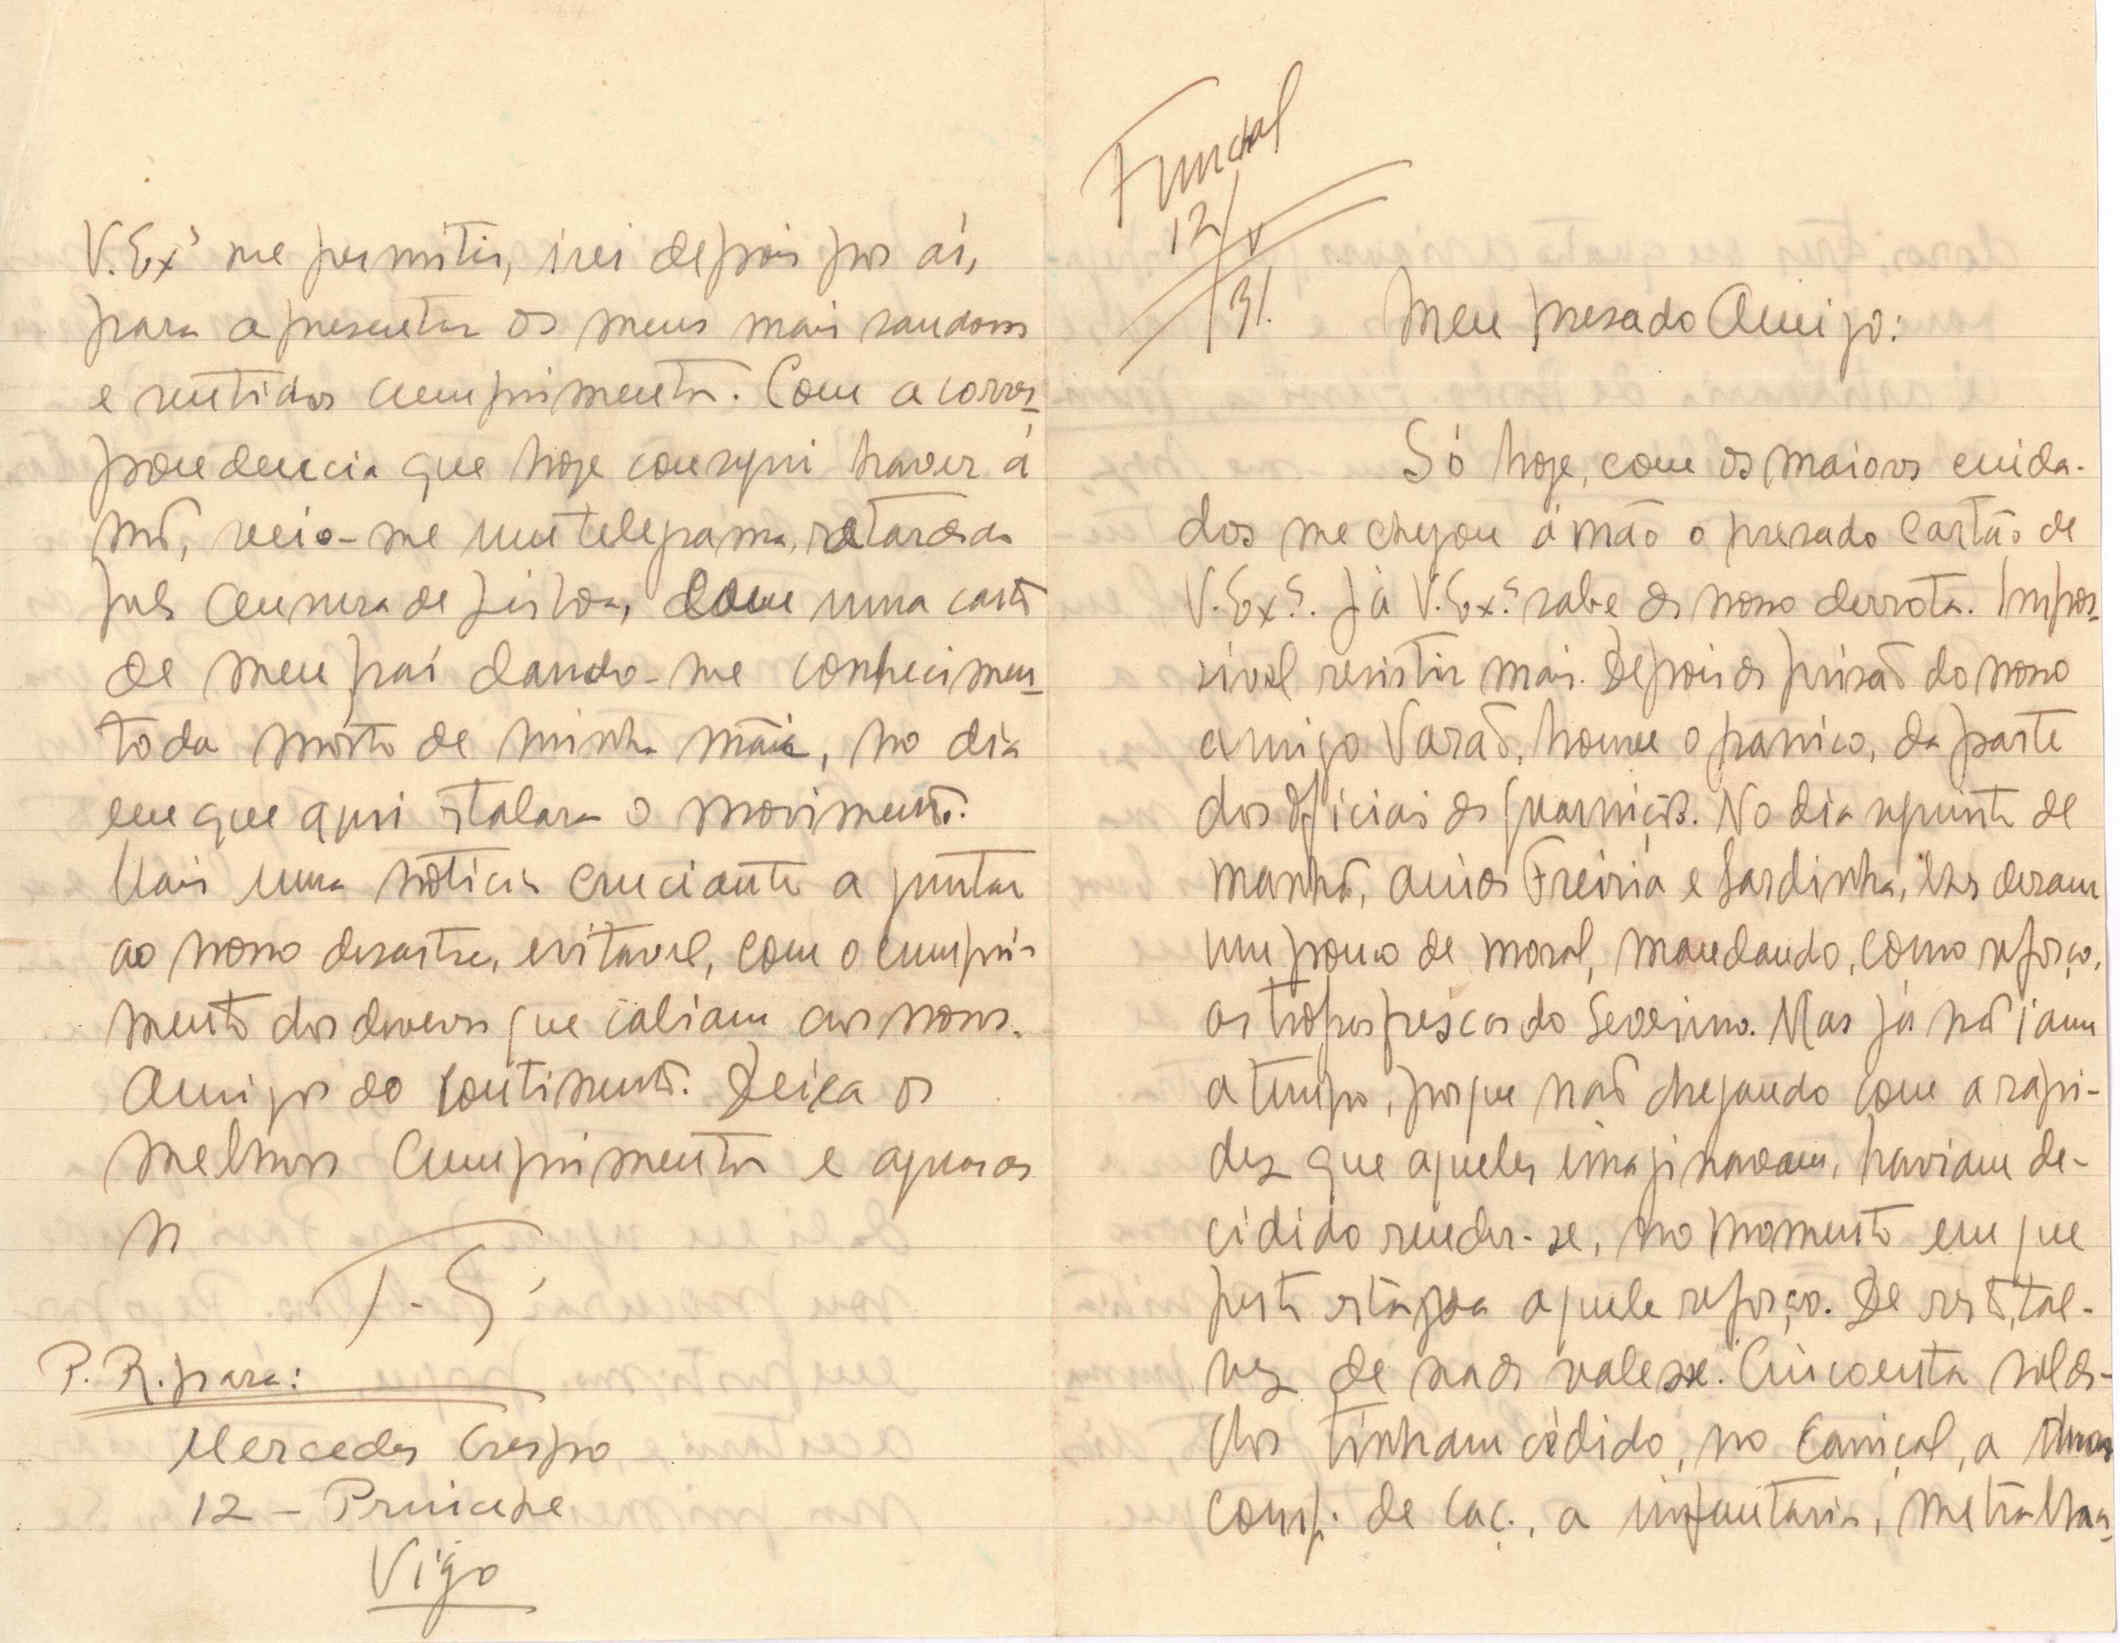 Funchal
12/V/31.
Meu presado Amigo:
Só hoje, com os maiores cuida-
dos me chegou á mão o presado cartão de
V. Exª. Já V. Exª sabe da nossa derrota. Impos-
sivel resistir mais. Depois da prisão do nosso
amigo Varão, houve o panico, da parte
dos oficiais da guarnição. No dia seguinte de
manhã, ainda Freiria e Sardinha, lhes deram
um pouco de moral, mandando, como reforço,
as tropas frescas do Severino. Mas já não iam
a tempo, porque não chegando com a rapi-
dez que aqueles imaginavam, haviam de-
cidido render-se, no momento em que
perto estava aquele reforço. De resto, tal-
vez de nada valesse. Cincoenta solda-
dos tinham cedido, no Caniçal, a duas
comp. de caç., a infantaria, metralha-
V. Exª me permitir, irei depois por aí,
para apresentar os meus mais saudosos
e sentidos cumprimentos. Com a corres-
pondencia que hoje consegui haver á
mão, veio-me um telegrama, retardado
pela censura de Lisboa, com uma carta
de meu pai dando-me conhecimen-
to da morte de minha mãe, no dia
em que aqui estalara o movimento.
Mais uma noticia cruciante a juntar
ao nosso desastre, evitavel, com o cumpri-
mento dos deveres que cabiam aos nossos
Amigos do Continente. Deixa os
melhores Cumprimentos e
T. S.
P. R. para:
Mercedes Crespo
12 - Principe
Vigo